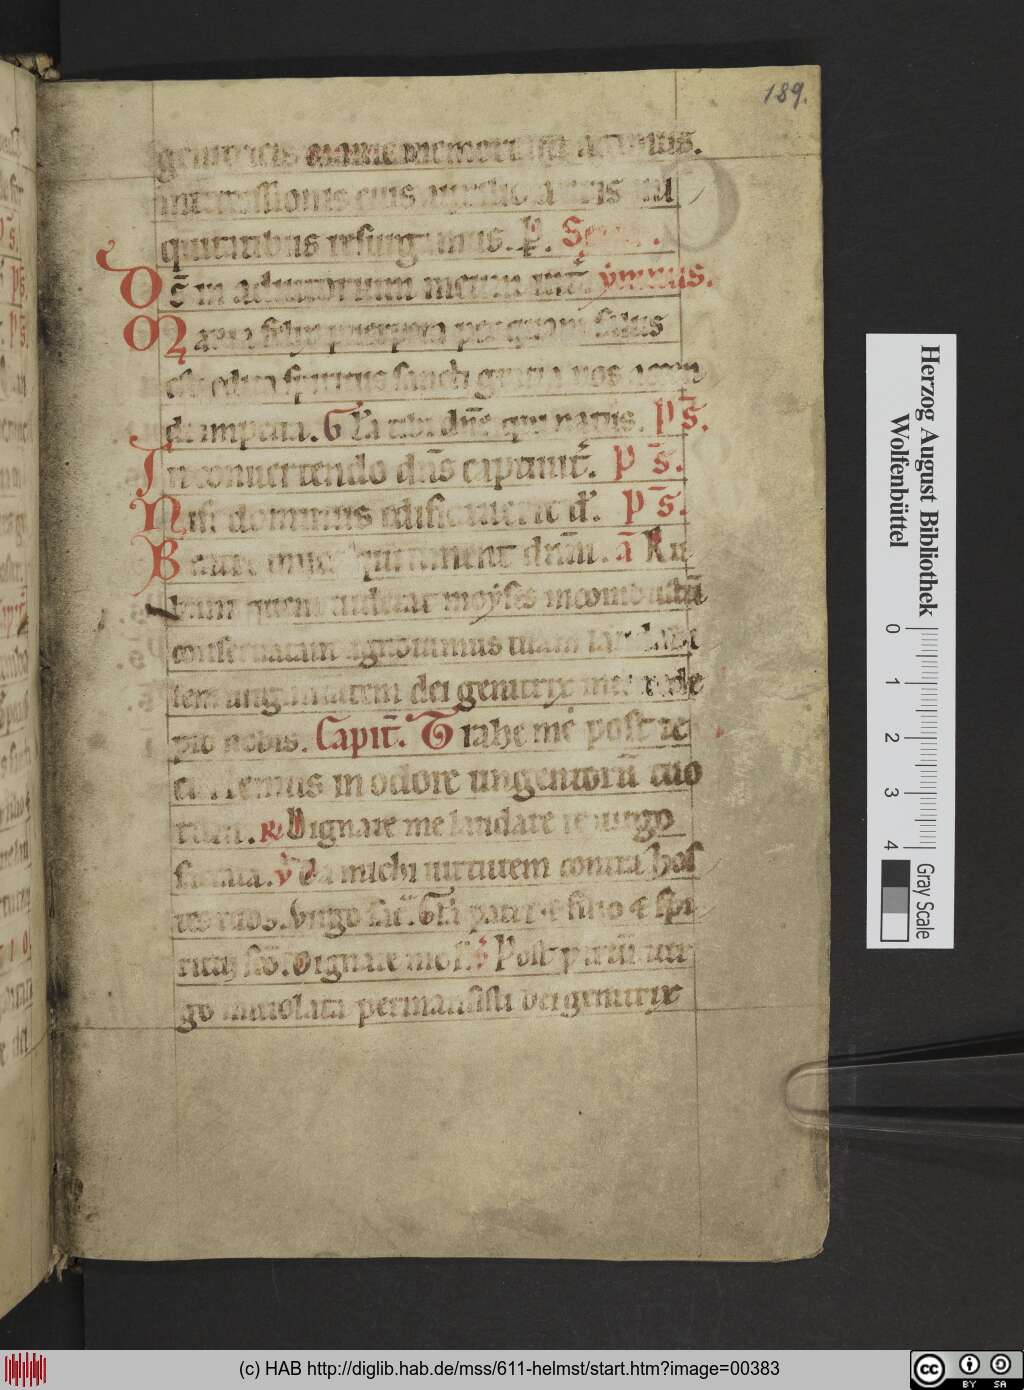 189.
genitricis marie memoriam agimus.
intercessionis eius auxilio a nris ini
quitatibus resurgamus. P. Sexta.
De in adiutorium meum int. ymnus.
Maria filijs puerpera per quam salus
dei impetra. Gla tibi dne qui natus. ps.
In conuertendo dns captiuit. ps.
Nisi dominus edificauerit d. ps.
Beati omnes qui timent dnm. a Ru
bum quem uiderat moyses incombustu
conseruatam agnouimus tuam lauda
lem uirginitatem dei genitrix intercede
pro nobis. Capit. Trahe me post te
curremus in odore ungentoru tuo
rum. R Dignare me laudare te uirgo
sacrata. V Da michi uirtutem contra hos
tes tuos. Virgo sac. Gla patri et filio et spi
ritui sco. Dignare me l. V Post partu uir
go inuiolata permansisti dei genitrix
Herzog August Bibliothek
Wolfenbüttel
0 1 2 3 4
Gray Scale
(c) HAB http://diglib.hab.de/mss/611-helmst/start.htm?image=00383
cc BY SA